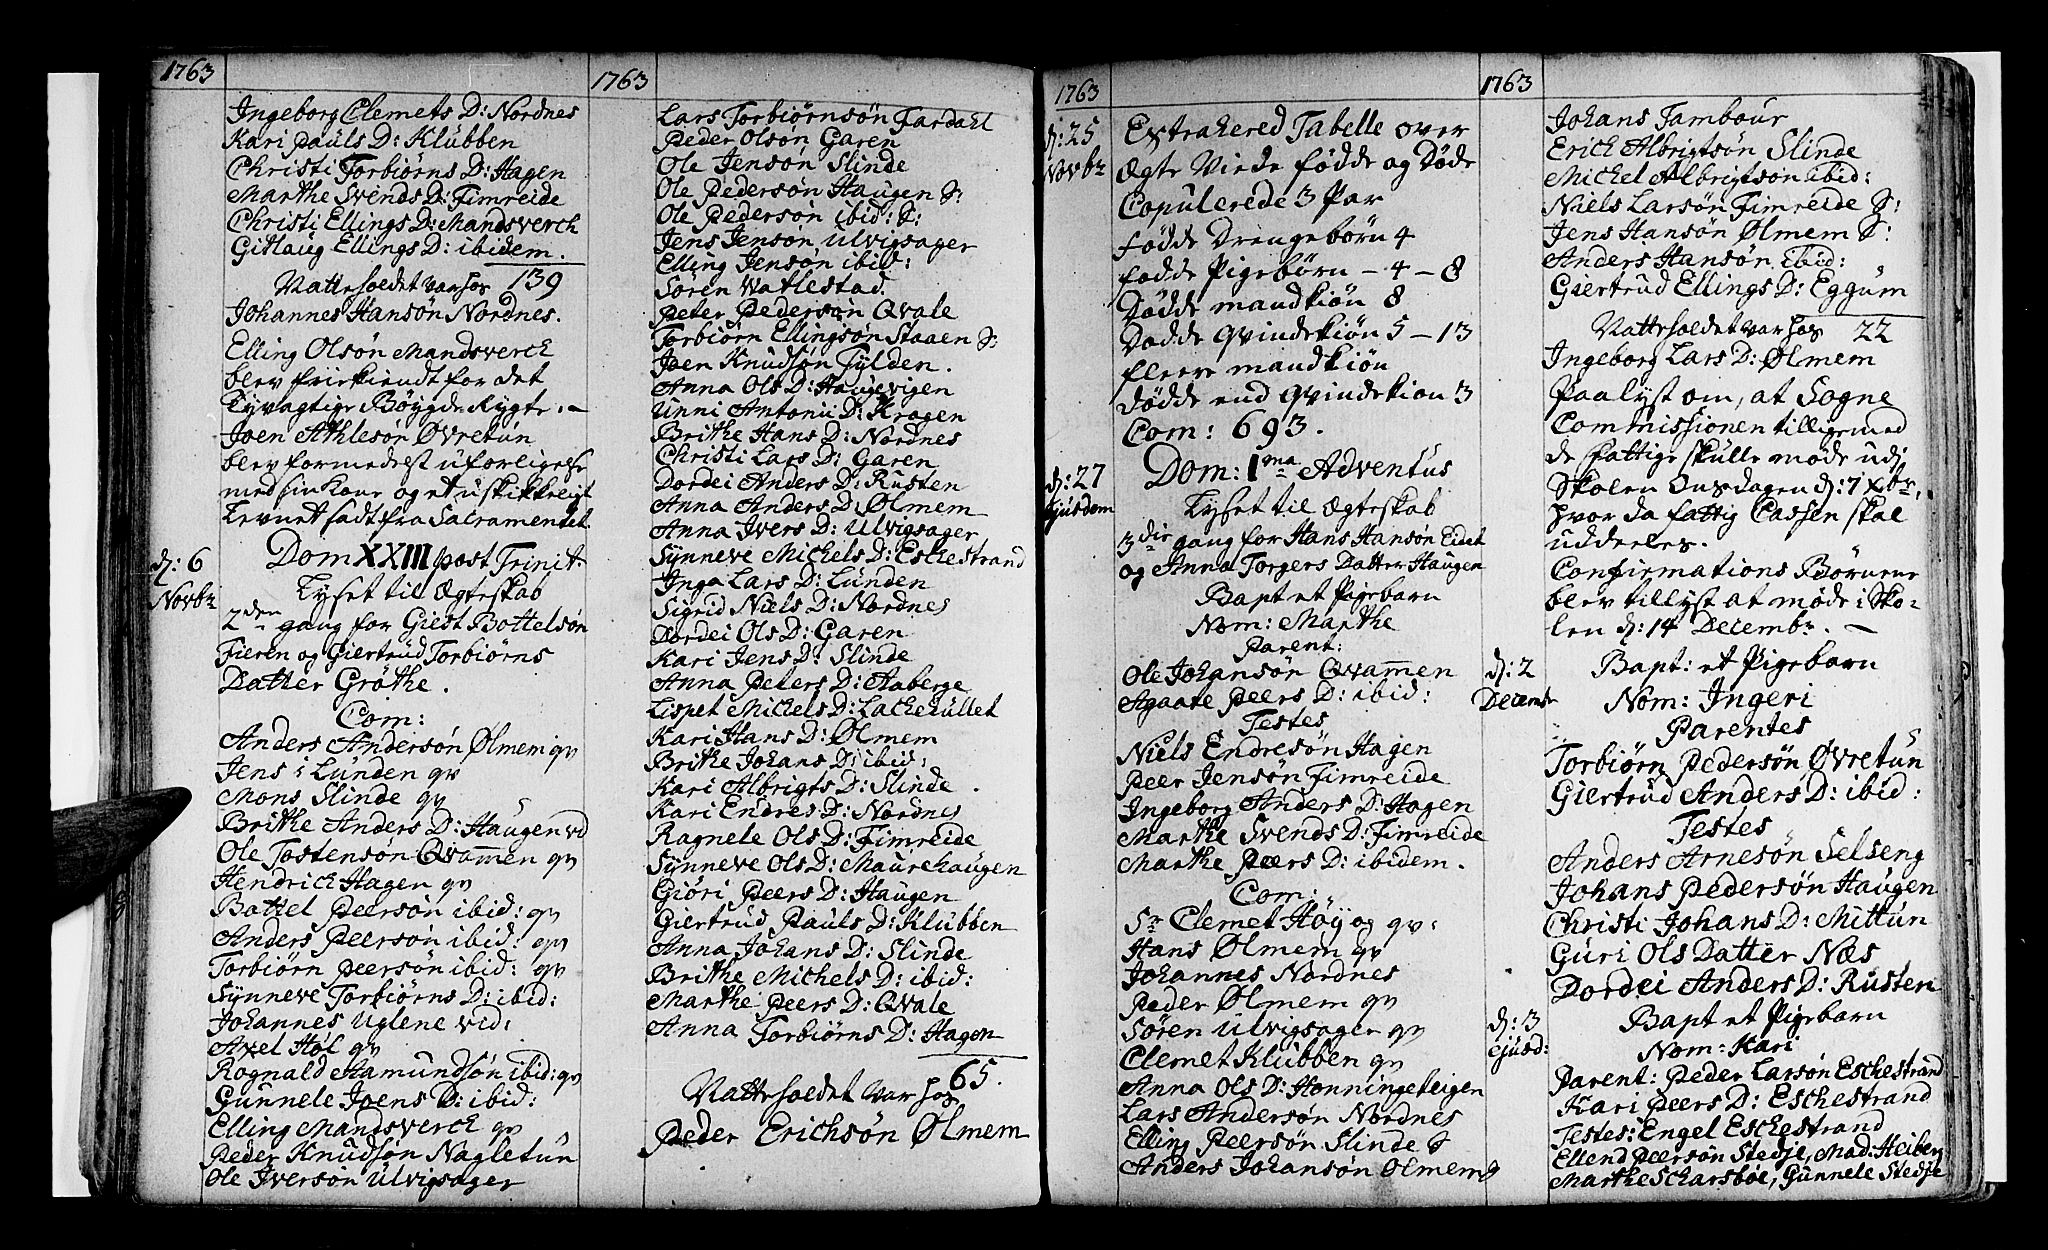 1763
Ingeborg Clemets D: Nordnes
Kari Pauls D: Klübben
Christi Torbiørns D: Hagen
Marthe Svends D: Fimreide
Christi Ellings D: Mandsverch
Gitlaug Ellings D: ibidem.
Natteholdet var hos 139
Johannes Hansøn Nordnes.
Elling Olsøn Mandsverch
blev friekiendt for det
Tyvagtige Bøygde Rygte. —
Joen Athlesøn Øvretün
blev formedelst uforligelse
med sin Kone og et uskikkeligt
Levnet sadt fra Sacramentet.
d: 6 Novbr
Dom XXIII post Trinit.
Lyset til Ægteskab
2den gang for Giest Bottelsøn
Fieren og Giertrud Torbiørns
Datter Grøthe.
Com:
Anders Andersøn Ølmem qv
Jens i Lunden qv
Mons Slinde qv
Brithe Anders D: Haugen vid
Ole Tostensøn Qvammen qv
Hendrich Hagen qv
Battel Peersøn ibid: qv
Anders Peersøn ibid: qv
Torbiørn Peersøn ibid: qv
Synneve Torbiørns D: ibid:
Johannes Uglene vid:
Axel Høl qv
Rognald Hamundsøn ibid: qv
Gunnele Joens D: ibid:
Elling Mandsverck qv
Peder Knudsøn Nagletün
Ole Iversøn Ulvigsager
1763
Lars Torbiørnsøn Fardahl
Peder Olsøn Garen
Ole Jensøn Slinde
Ole Pedersøn Haugen S:
Ole Pedersøn ibid: S:
Jens Jensøn Ulvigsager
Elling Jensøn ibid:
Søren Vatlestad
Peter Pedersøn Qvale
Torbiørn Ellingsøn Staaen S:
Joen Knudsøn Fylden.
Anna Ols D: Haugevigen
Unni Antonii D: Kragen
Brithe Hans D: Nordnes
Christi Lars D: Garen
Dordei Anders D: Rusten
Anna Anders D: Ølmem
Anna Ivers D: Ulvigsager
Synneve Michels D: Eschestrand
Inga Lars D: Lunden
Sigrid Niels D: Nordnes
Dordei Ols D: Garen
Kari Jens D: Slinde
Anna Peters D: Aaberge
Lispet Michels D: Lachekullet
Kari Hans D: Ølmem
Brithe Johans D: ibid:
Kari Albrigts D: Slinde.
Kari Endres D: Nordnes
Ragnele Ols D: Fimreide
Synneve Ols D: Maurehaugen
Giøri Peers D: Haugen
Giertrud Pauls D: Klübben
Anna Johans D: Slinde
Brithe Michels D: ibid:
Marthe Peers D: Qvale
Anna Torbiørns D: Hagen
65.
Natteholdet var hos
Peder Erichsøn Ølmem
1763
d: 25 Novbr
Extrahered Tabelle over
Ægte Viede fødde og Døde
Copulerede 3 Par
Fødde Drengebørn 4
Fødde Pigebørn – 4 – 8
Dødde mandkiøn 8
Dødde Qvindekiøn 5 – 13
fleere mandkiøn
dødde end Qvindekiøn 3
Com: 693.
d: 27 Ejusdem
Dom: 1ma Adventus
Lyset til Ægteskab
3die gang for Hans Hansøn Eidet
og Anna Torgers Datter Haugen
Bapt et Pigebarn
Nom: Marthe
Parent:
Ole Johansøn Qvammen
Agaate Peers D: ibid:
Testes
Niels Endresøn Hagen
Peer Jensøn Fimreide
Ingeborg Anders D: Hagen
Marthe Svends D: Fimreide
Marthe Peers D: ibidem.
Com:
Sr Clemet Høy og qv:
Hans Ølmem qv
Johannes Nordnes
Peder Ølmem qv
Søren Ulvigsager qv
Clemet Klübben qv
Anna Ols D: Honningeteigen
Lars Andersøn Nordnes
Elling Peersøn Slinde S
Anders Johansøn Ølmem
1763
Johans Tambour
Erich Albrigtsøn Slinde
Michel Albrigtsøn ibid:
Niels Larsøn Fimreide S:
Jens Hansøn Ølmem S:
Anders Hansøn ibid:
Giertrud Ellings D: Eggum
Natteholdet var hos 22
Ingeborg Lars D: Ølmem
Paalyst om, at Sogne
Commissionen tilligemed
de Fattige skulle møde udj
Skolen Onsdagen d: 7 Xbr,
hvor da fattig Cassen skal
uddeeles.
Confirmations Børnene
blev tillyst at møde i Sko-
len d: 14 Decembr. —
d: 2 Decembr
Bapt: et Pigebarn
Nom: Ingeri
Parentes
Torbiørn Pedersøn Øvretün
Giertrud Anders D: ibid:
Testes
Anders Arnesøn Selseng
Johans Pedersøn Haugen
Christi Johans D: Mittun
Guri Ols Datter Næs
Dordei Anders D: Rusten
d: 3 ejusd:
Bapt et Pigebarn
Nom: Kari
Parent: Peder Larsøn Eschestrand
Kari Peers D: Eschestrand
Testes: Engel Eschestrand
Ellend Peersøn Stedje, Mad: Heiberg
Marthe Scharsbøe, Gunnele Stedje